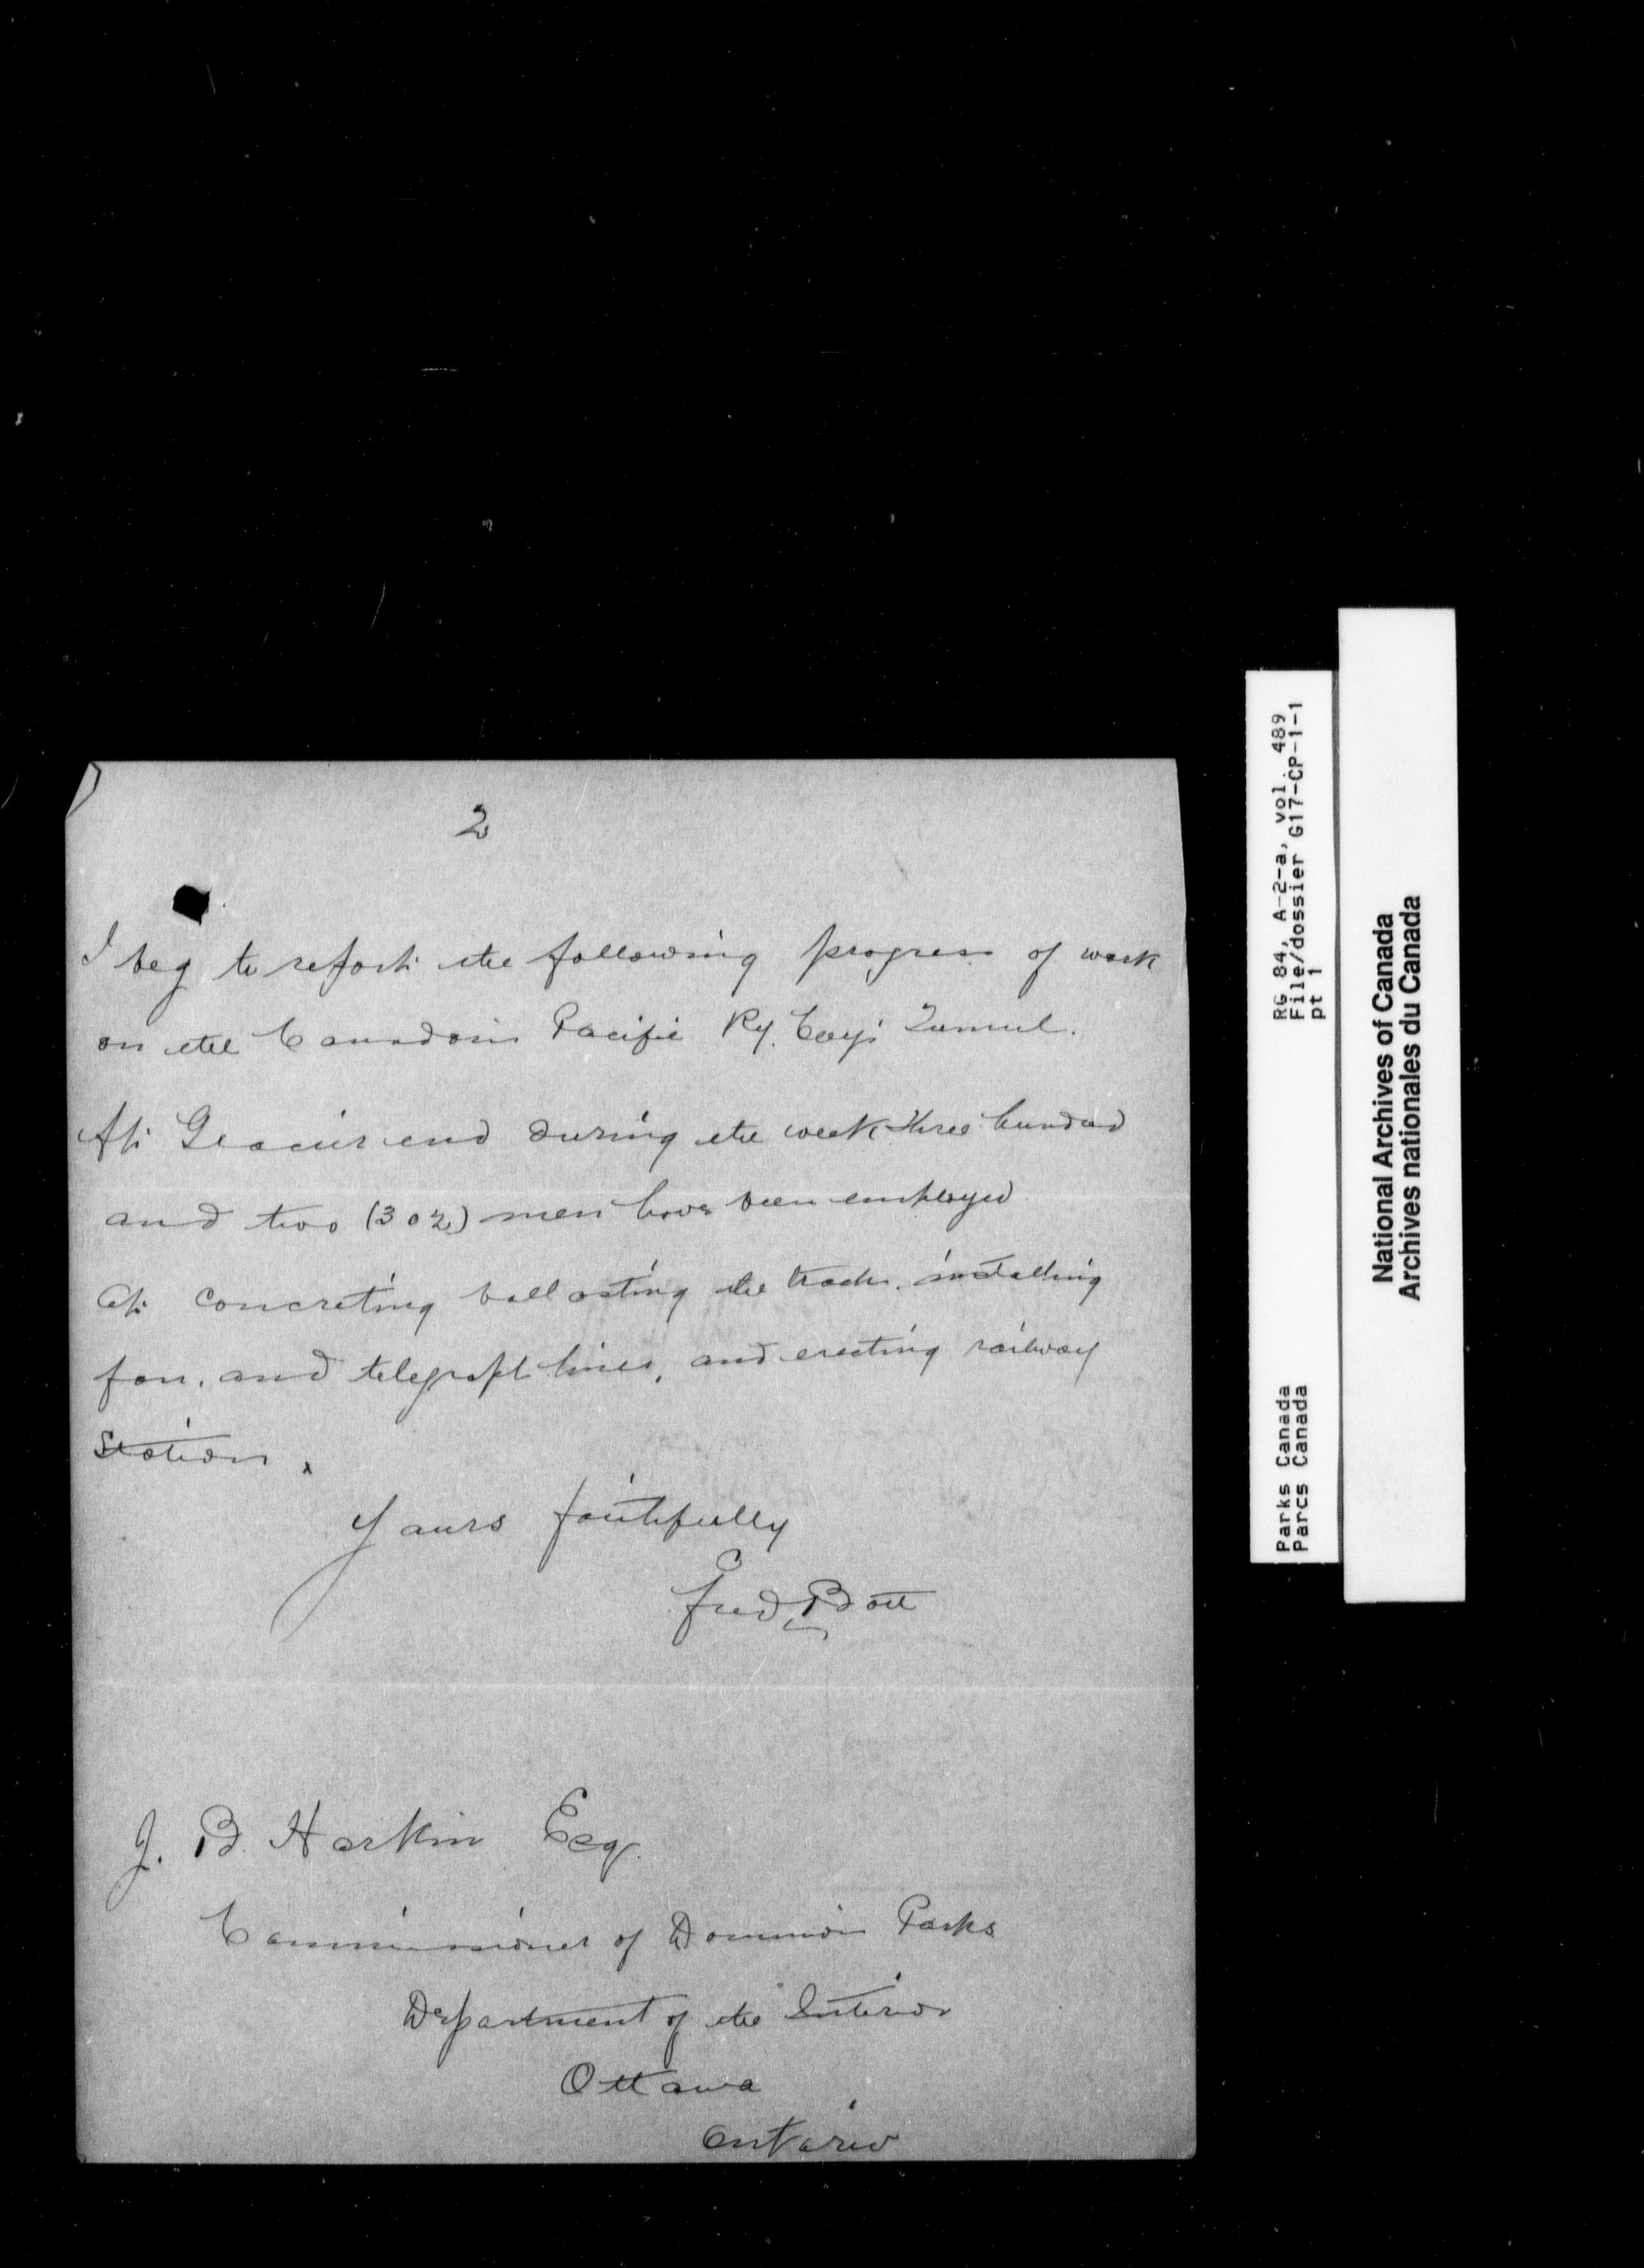 2
I beg to report the following progress of work
on the Canadian Pacific Ry. Coy's Tunnel.
At Glacier end during the week three hundred
and two (302) men have been employed
At concreting ballasting the track. installing
fan. and telegraph lines, and erecting railway
Station.
Yours faithfully
Fred Bott
J. B. Harkin Esq.
Commissioner of Dominion Parks
Department of the Interior
Ottawa
Ontario
RG 84, A-2-a, vol. 489
File/dossier G17-CP-1-1
pt 1
Parks Canada
Parcs Canada
National Archives of Canada
Archives nationales du Canada